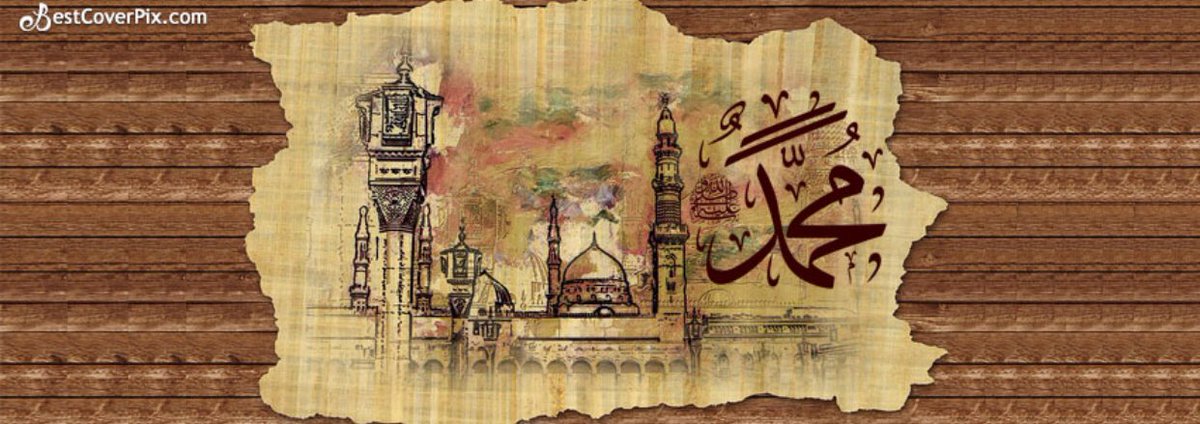 BestCoverPix.com
مُحَمَّدٌ
صلى الله عليه وسلم